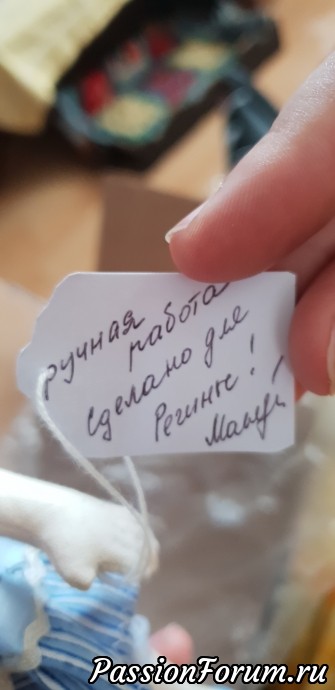 ручная
работа
Сделано для
Регины!
PassionForum.ru